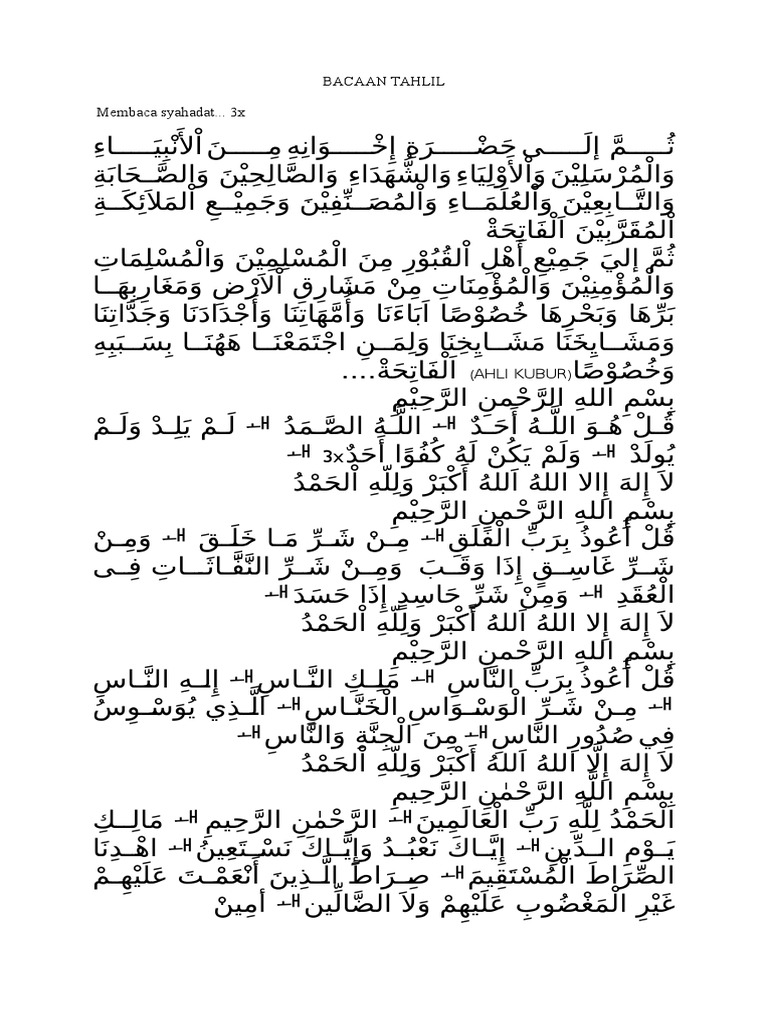 BACAAN TAHLIL
Membaca syahadat... 3x
ثُمَّ إِلَى حَضْرَةِ إِخْوَانِهِ مِنَ اْلأَنْبِيَاءِ
وَالْمُرْسَلِيْنَ وَاْلأَوْلِيَاءِ وَالشُّهَدَاءِ وَالصَّالِحِيْنَ وَالصَّحَابَةِ
وَالتَّابِعِيْنَ وَاْلعُلَمَاءِ وَاْلمُصَنِّفِيْنَ وَجَمِيْعِ اْلمَلاَئِكَةِ
اْلمُقَرَّبِيْنَ اَلْفَاتِحَةْ
ثُمَّ إليَ جَمِيْعِ أَهْلِ اْلقُبُوْرِ مِنَ الْمُسْلِمِيْنَ وَالْمُسْلِمَاتِ
وَالْمُؤْمِنِيْنَ وَالْمُؤْمِنَاتِ مِنْ مَشَارِقِ اْلاَرْضِ وَمَغَارِبِهَا
بَرِّهَا وَبَحْرِهَا خُصُوْصًا اَبَاءَنَا وَأُمَّهَاتِنَا وَأَجْدَادَنَا وَجَدَّاتِنَا
وَمَشَايِخَنَا مَشَايِخِنَا وَلِمَنِ اجْتَمَعْنَا هَهُنَا بِسَبَبِهِ
وَخُصُوْصًا(AHLI KUBUR) اَلْفَاتِحَةْ....
بِسْمِ اللهِ الرَّحْمنِ الرَّحِيْمِ
قُلْ هُوَ اللَّهُ أَحَدٌ اللَّهُ الصَّمَدُ لَمْ يَلِدْ وَلَمْ
يُولَدْ وَلَمْ يَكُنْ لَهُ كُفُوًا أَحَدٌ3x
لاَ إِلهَ إِالا اللهُ اَللهُ أَكْبَرْ وَلِلّهِ اْلحَمْدُ
بِسْمِ اللهِ الرَّحْمنِ الرَّحِيْمِ
قُلْ أَعُوذُ بِرَبِّ الْفَلَقِ مِنْ شَرِّ مَا خَلَقَ وَمِنْ
شَرِّ غَاسِقٍ إِذَا وَقَبَ وَمِنْ شَرِّ النَّفَّاثَاتِ فِى
الْعُقَدِ وَمِنْ شَرِّ حَاسِدٍ إِذَا حَسَدَ
لاَ إِلهَ إِلا اللهُ اَللهُ أَكْبَرْ وَلِلّهِ اْلحَمْدُ
بِسْمِ اللهِ الرَّحْمنِ الرَّحِيْمِ
قُلْ أَعُوذُ بِرَبِّ النَّاسِ مَلِكِ النَّاسِ إِلهِ النَّاسِ
مِنْ شَرِّ الْوَسْوَاسِ الْخَنَّاسِ الَّذِي يُوَسْوِسُ
فِي صُدُورِ النَّاسِ مِنَ الْجِنَّةِ وَالنَّاسِ
لاَ إِلهَ إِلَّا اللهُ اَللهُ أَكْبَرْ وَلِلّهِ اْلحَمْدُ
بِسْمِ اللَّهِ الرَّحْمٰنِ الرَّحِيمِ
الْحَمْدُ لِلَّهِ رَبِّ الْعَالَمِينَ الرَّحْمٰنِ الرَّحِيمِ مَالِكِ
يَوْمِ الدِّينِ إِيَّاكَ نَعْبُدُ وَإِيَّاكَ نَسْتَعِينُ اهْدِنَا
الصِّرَاطَ الْمُسْتَقِيمَ صِرَاطَ الَّذِينَ أَنْعَمْتَ عَلَيْهِمْ
غَيْرِ الْمَغْضُوبِ عَلَيْهِمْ وَلاَ الضَّالِّين أمِينْ